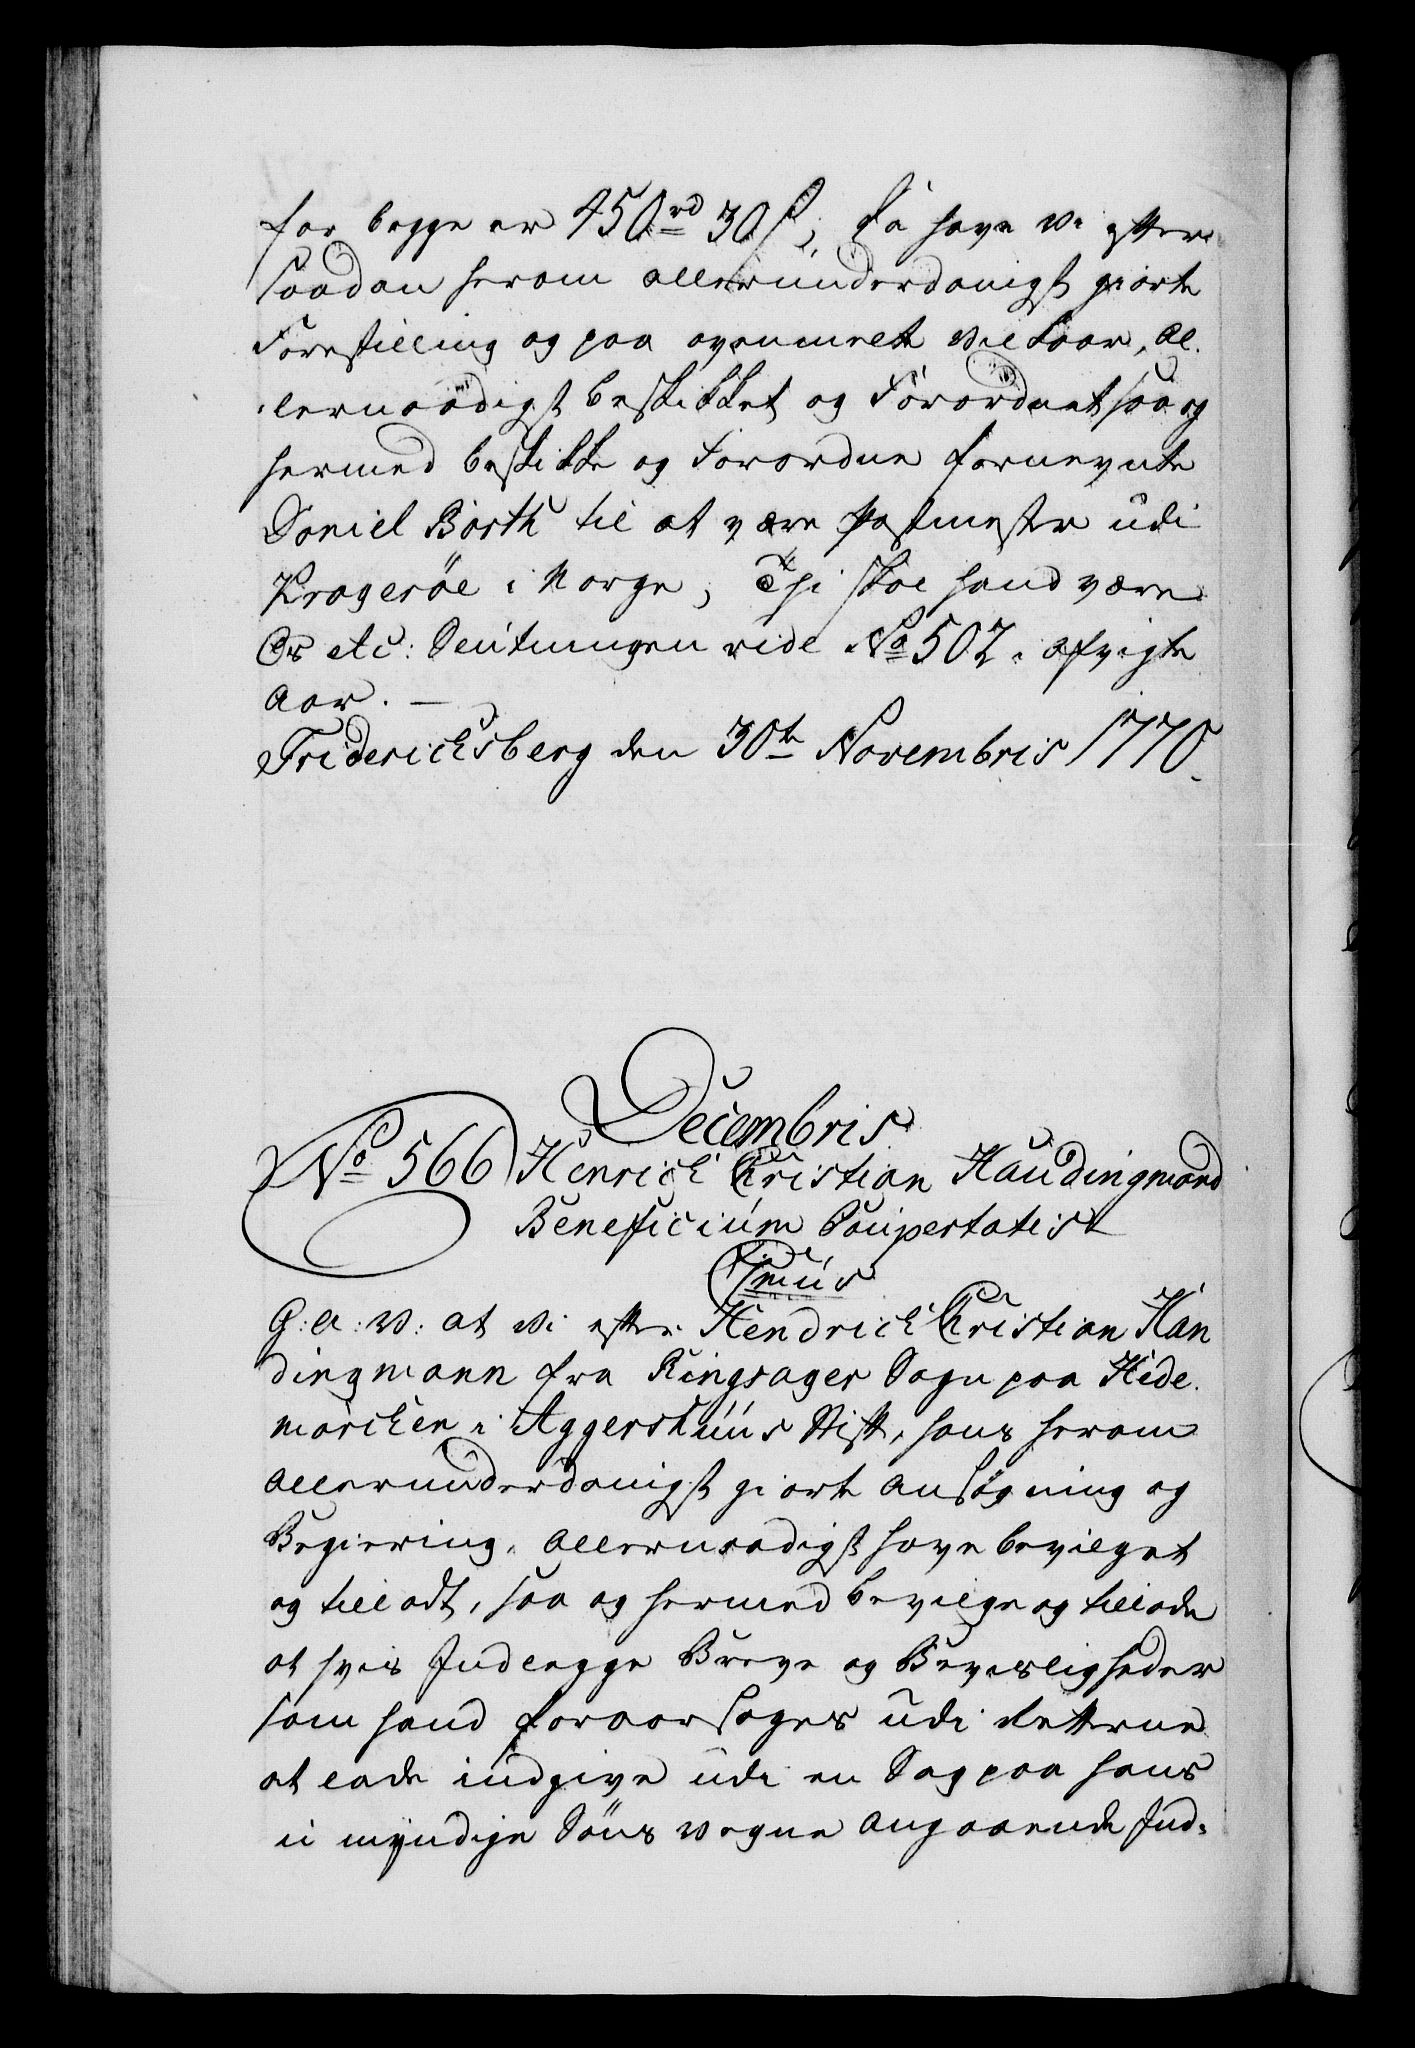 for begge er 450rd 30 s, Da have Vi efter
saadan herom allerunderdanigst giorte
Forestilling og paa ovenmelte Vilkaar, Al-
lernaadigst beskikket og Forordnet saa og
hermed beskikke og Forordne fornevnte
Daniel Barth til at være Postmester udi
Kragerøe i Norge, Thi skal hand være
Os etc: Slutningen vide No 502 i afvigte
Aar. —
Friderichsberg den 30te Novembris 1770
Decembris
No 566 Henrich Christian Haudingmand
Beneficium Paupertatis
1mus
G: A: V: at Vi efter Hendrich Christian Han
dingmann fra Ringsager Sogn paa Hede-
marcken i Aggershuus Stift, hans herom
allerunderdanigst giorte Ansøgning og
Begiering, Allernaadigst have bevilget
og tilladt, saa og hermed bevilge og tillade
at hvis Indlegge Breve og Bevisligheder
som hand foraarsages udi Retterne
at lade indgive udi en Sag paa hans
u myndige Søns vegne angaaende Ind-